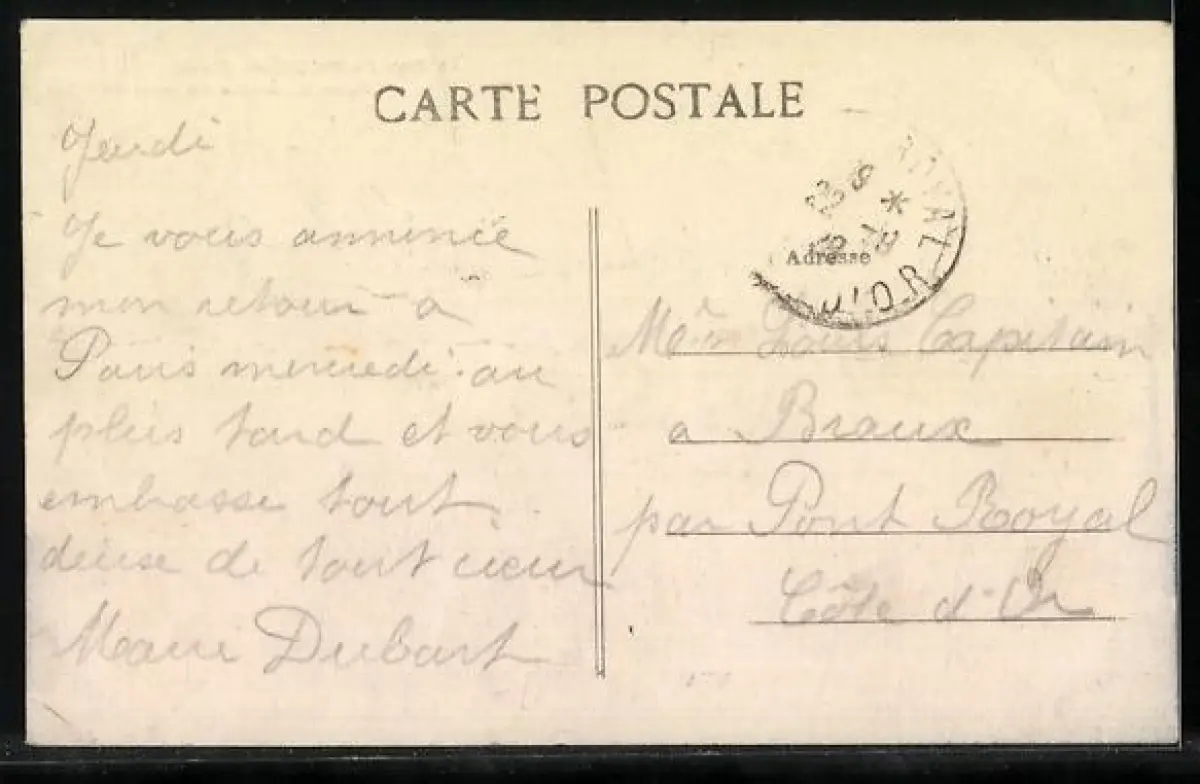 CARTE POSTALE
Jeudi
Je vous annonce
mon retour a
Paris mercredi au
plus tard et vous
embrasse tout
deux de tout cœur
Marie Dubart
Adresse
D'OR
Mme Louis Capitain
a Braux
par Pont Royal
Côte d'Or